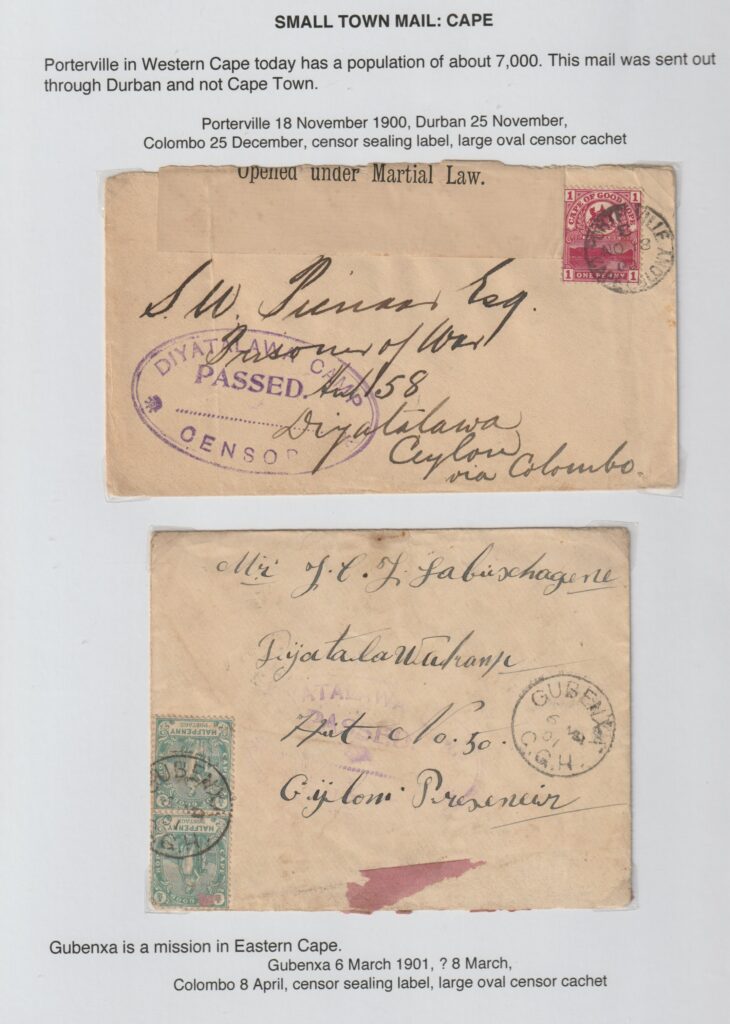 SMALL TOWN MAIL: CAPE
Porterville in Western Cape today has a population of about 7,000. This mail was sent out
through Durban and not Cape Town.
Porterville 18 November 1900, Durban 25 November,
Colombo 25 December, censor sealing label, large oval censor cachet
Opened under Martial Law.
1 1
CAPE OF GOOD HOPE
1 ONE PENNY 1
S. W. Pienaar Esq.
Prisoner of War
Hut 158
Diyatalawa
Ceylon
via Colombo.
DIYATALAWA CAMP
PASSED.
CENSOR
Mr J. C. J. Labuschagene
Dyatalawa
Hut No. 50.
Prisoneir
DIYATALAWA
PASSED
GUBENXA
6 MR
01
C.G.H.
POSTAGE
HALFPENNY
POSTAGE
HALFPENNY
GUBENXA
C.G.H.
Gubenxa is a mission in Eastern Cape.
Gubenxa 6 March 1901, ? 8 March,
Colombo 8 April, censor sealing label, large oval censor cachet